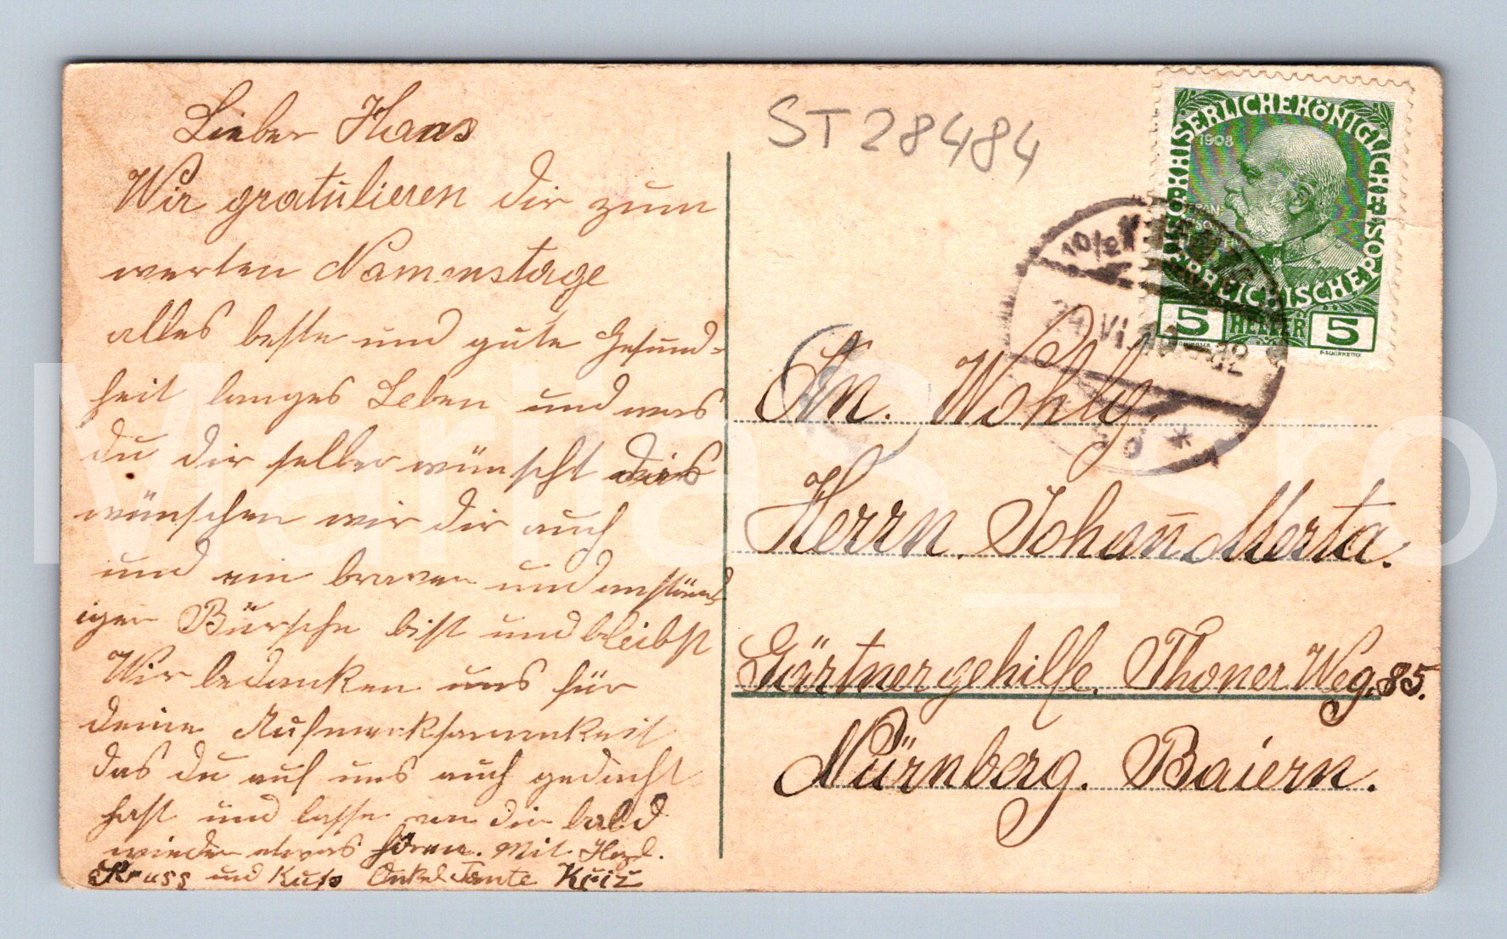 Lieber Hans
Wir gratulieren dir zum
werten Namenstage
alles beste und gute Gesund-
heit langes Leben und was
du dir selber wünscht dies
wünschen wir dir auch
und ein braver und anständ
iger Bürsche bist und bleibst
Wir bedanken uns für
deine Aufmerksamkeit
das du auf uns auch gedacht
hast und lasse von dir bald
wieder etwas hören. Mit Herzl.
Gruss und Kuss Onkel Tante
ST28484
KAISERLICHE KÖNIGLICHE
ÖSTERREICHISCHE POST
1908
5 HELLER 5
VI
An. Wohlg.
Herrn. Johann Merta.
Gärtnergehilfe. Thoner Weg. 85.
Nürnberg. Baiern.